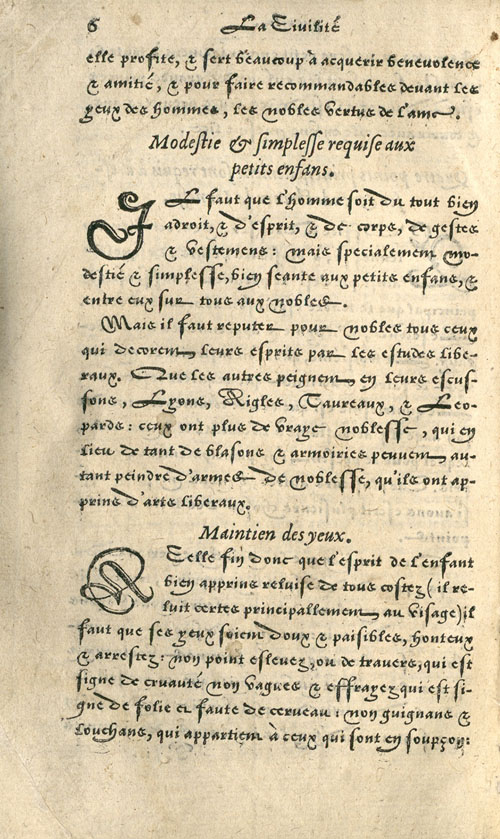 6 La Civilité
elle profite, & sert beaucoup à acquerir benevolence
& amitié, & pour faire recommandables devant les
yeux des hommes, les nobles vertus de l'ame.
Modestie & simplesse requise aux
petits enfans.
IL faut que l'homme soit du tout bien
adroit, & d'esprit, & de corps, de gestes
& vestemens: mais specialement mo-
destie & simplesse, bien seante aux petits enfans, &
entre eux sur tous aux nobles.
Mais il faut reputer pour nobles tous ceux
qui decorent leurs esprits par les estudes libe-
raux. Que les autres peignent en leurs escus-
sons, Lyons, Aigles, Taureaux, & Leo-
pards: ceux ont plus de vraye noblesse, qui en
lieu de tant de blasons & armoiries peuvent au-
tant peindre d'armes de noblesse, qu'ils ont ap-
prins d'arts liberaux.
Maintien des yeux.
A Celle fin donc que l'esprit de l'enfant
bien apprins reluise de tous costez (il re-
luit certes principallement au visage) il
faut que ses yeux soient doux & paisibles, honteux
& arrestez: non point eslevez, ou de travers, qui est
signe de cruauté non vagues & effrayez qui est si-
gne de folie et faute de cerveau: non guignans &
louchans, qui appartient à ceux qui sont en soupçon: